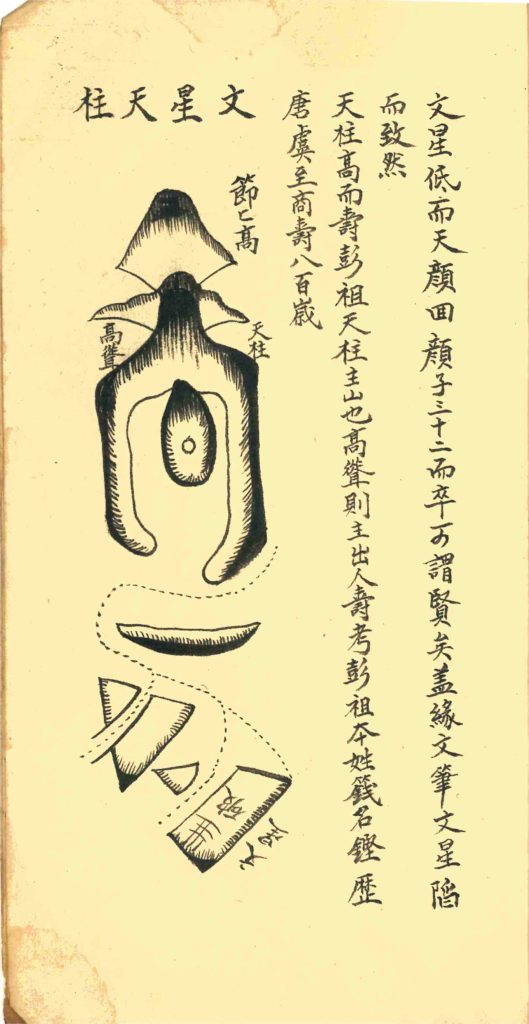 文星低而天顔囬顔子三十二而卒可謂賢矣盖緣文筆文星陷
而致然
天柱髙而壽彭祖天柱主山也髙聳則主出人壽考彭祖夲姓籛名鏗歴
唐虞至商壽八百歲
文星天柱
節〻髙
天柱
髙聳
破